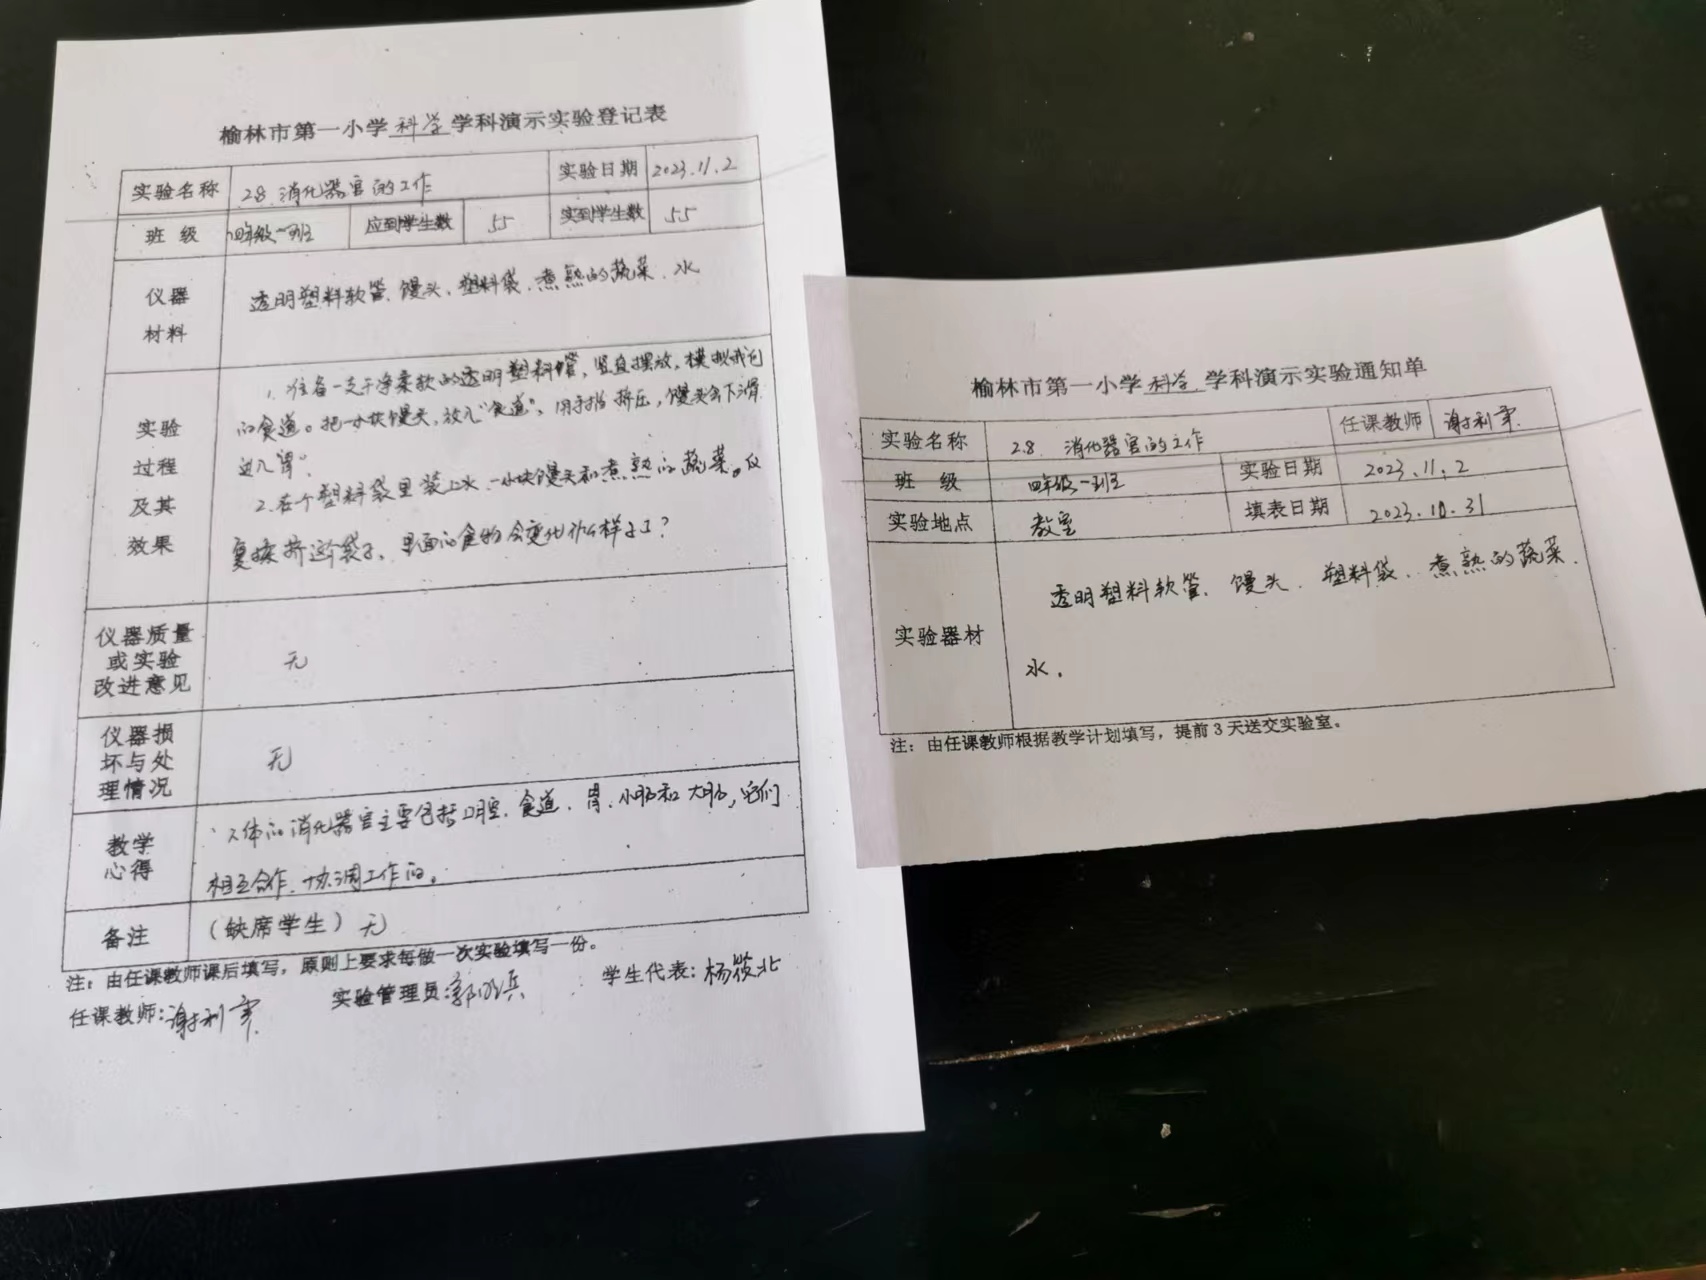 榆林市第一小学 科学 学科演示实验登记表
实验名称 2.8 消化器官的工作 实验日期 2023.11.2
班 级 四年级一班 应到学生数 55 实到学生数 55
仪器
材料
透明塑料软管、馒头、塑料袋、煮熟的蔬菜、水
实验
过程
及其
效果
1. 准备一支干净柔软的透明塑料管，竖直摆放，模拟我们
的食道。把一小块馒头，放入“食道”，用手指挤压，馒头会下滑
进入胃”。
2. 在个塑料袋里装上水、一小块馒头和煮熟的蔬菜。反
复揉挤这个袋子，里面的食物会变化什么样子了？
仪器质量
或实验
改进意见
无
仪器损
坏与处
理情况
无
教学
心得
人体的消化器官主要包括口腔、食道、胃、小肠和大肠，它们
相互合作、协调工作的。
备注 （缺席学生）无
注：由任课教师课后填写，原则上要求每做一次实验填写一份。
任课教师：谢利军 实验管理员： 学生代表：杨筱北
榆林市第一小学 科学 学科演示实验通知单
实验名称 2.8 消化器官的工作 任课教师 谢利军
班 级 四年级一班 实验日期 2023.11.2
实验地点 教室 填表日期 2023.10.31
实验器材
透明塑料软管、馒头、塑料袋、煮熟的蔬菜、
水。
注：由任课教师根据教学计划填写，提前3天送交实验室。